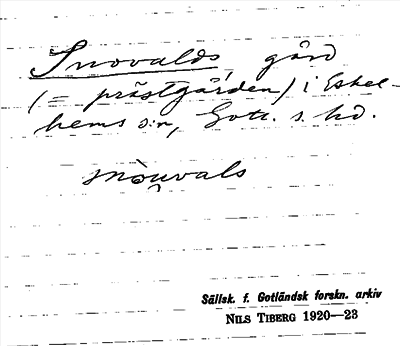 Snovalds, gård
(= prästgården) i Eskel-
hems s:n, Gotl. s. hd.
snòu̯vals
Sällsk. f. Gotländsk forskn. arkiv
NILS TIBERG 1920—23